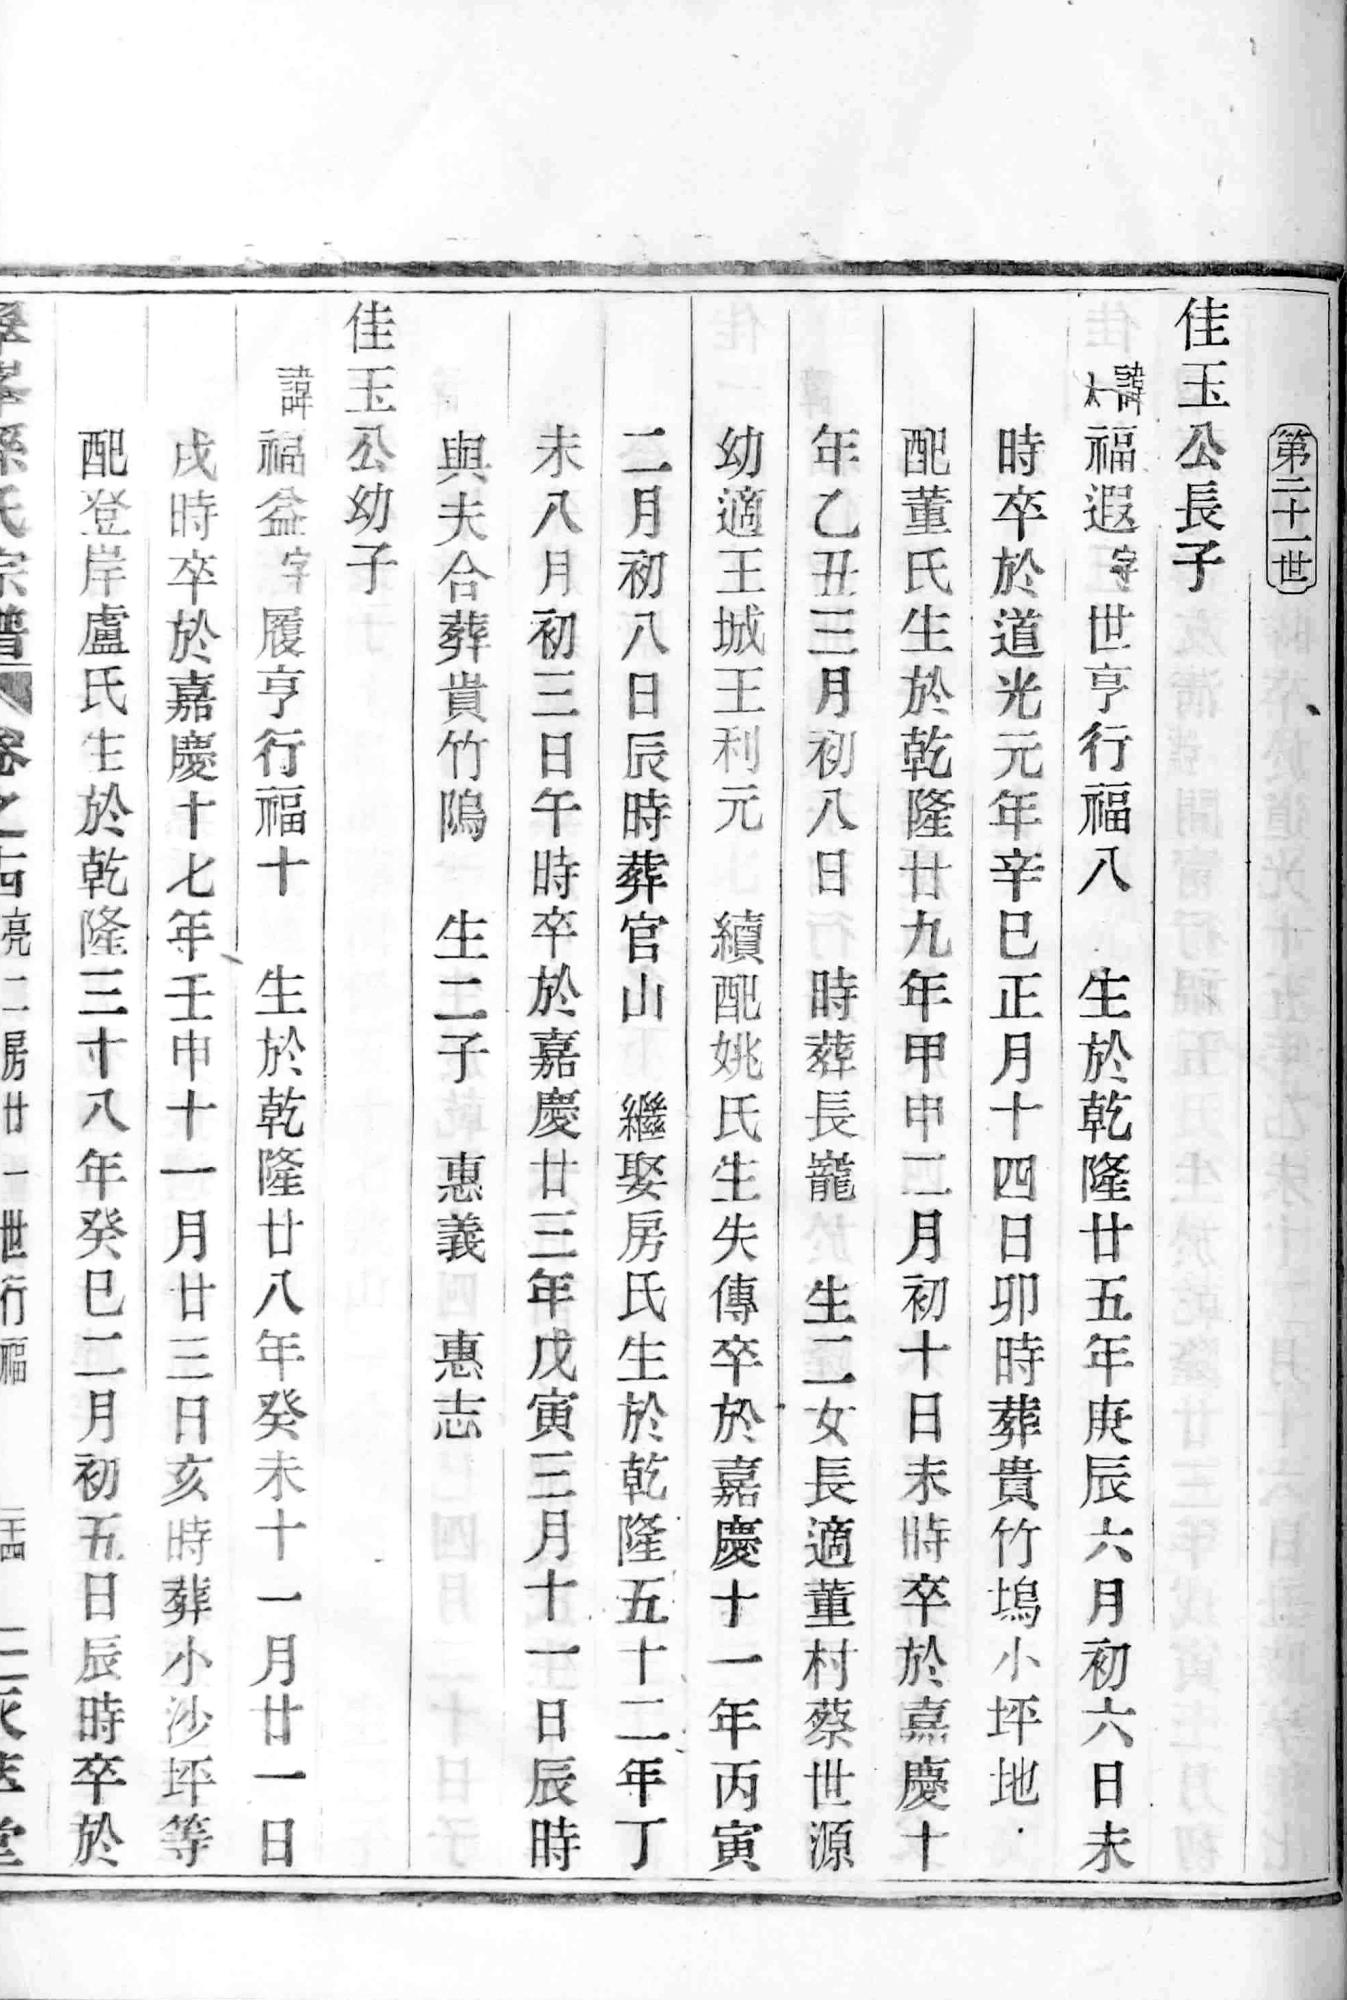 第二十一世
佳玉公長子
諱福遐字世亨行福八 生於乾隆廿五年庚辰六月初六日未
時卒於道光元年辛巳正月十四日卯時葬貴竹塢小坪地
配董氏生於乾隆廿九年甲申二月初十日未時卒於嘉慶十
年乙丑三月初八日 時葬長龍 生二女長適董村蔡世源
幼適王城王利元 續配姚氏生失傳卒於嘉慶十一年丙寅
二月初八日辰時葬官山 繼娶房氏生於乾隆五十二年丁
未八月初三日午時卒於嘉慶廿三年戊寅三月十一日辰時
與夫合葬貴竹隖 生二子 惠義 惠志
佳玉公幼子
諱福益字履亨行福十 生於乾隆廿八年癸未十一月廿一日
戌時卒於嘉慶十七年壬申十一月廿三日亥時葬小沙坪等
配登岸盧氏生於乾隆三十八年癸巳二月初五日辰時卒於
孫氏宗譜 卷之 亮二房廿一世行福